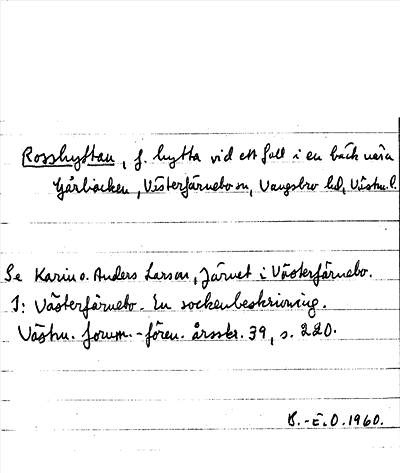 Rosshyttan, f. hytta vid ett fall i en bäck nära
Gärbäcken, Västerfärnebo sn, Vangsbro hd, Västm. l.
Se Karin o. Anders Larson, Järnet i Västerfärnebo.
I: Västerfärnebo. En sockenbeskrivning.
Västm. fornm.-fören. årsskr. 39, s. 220.
B.-E.O. 1960.